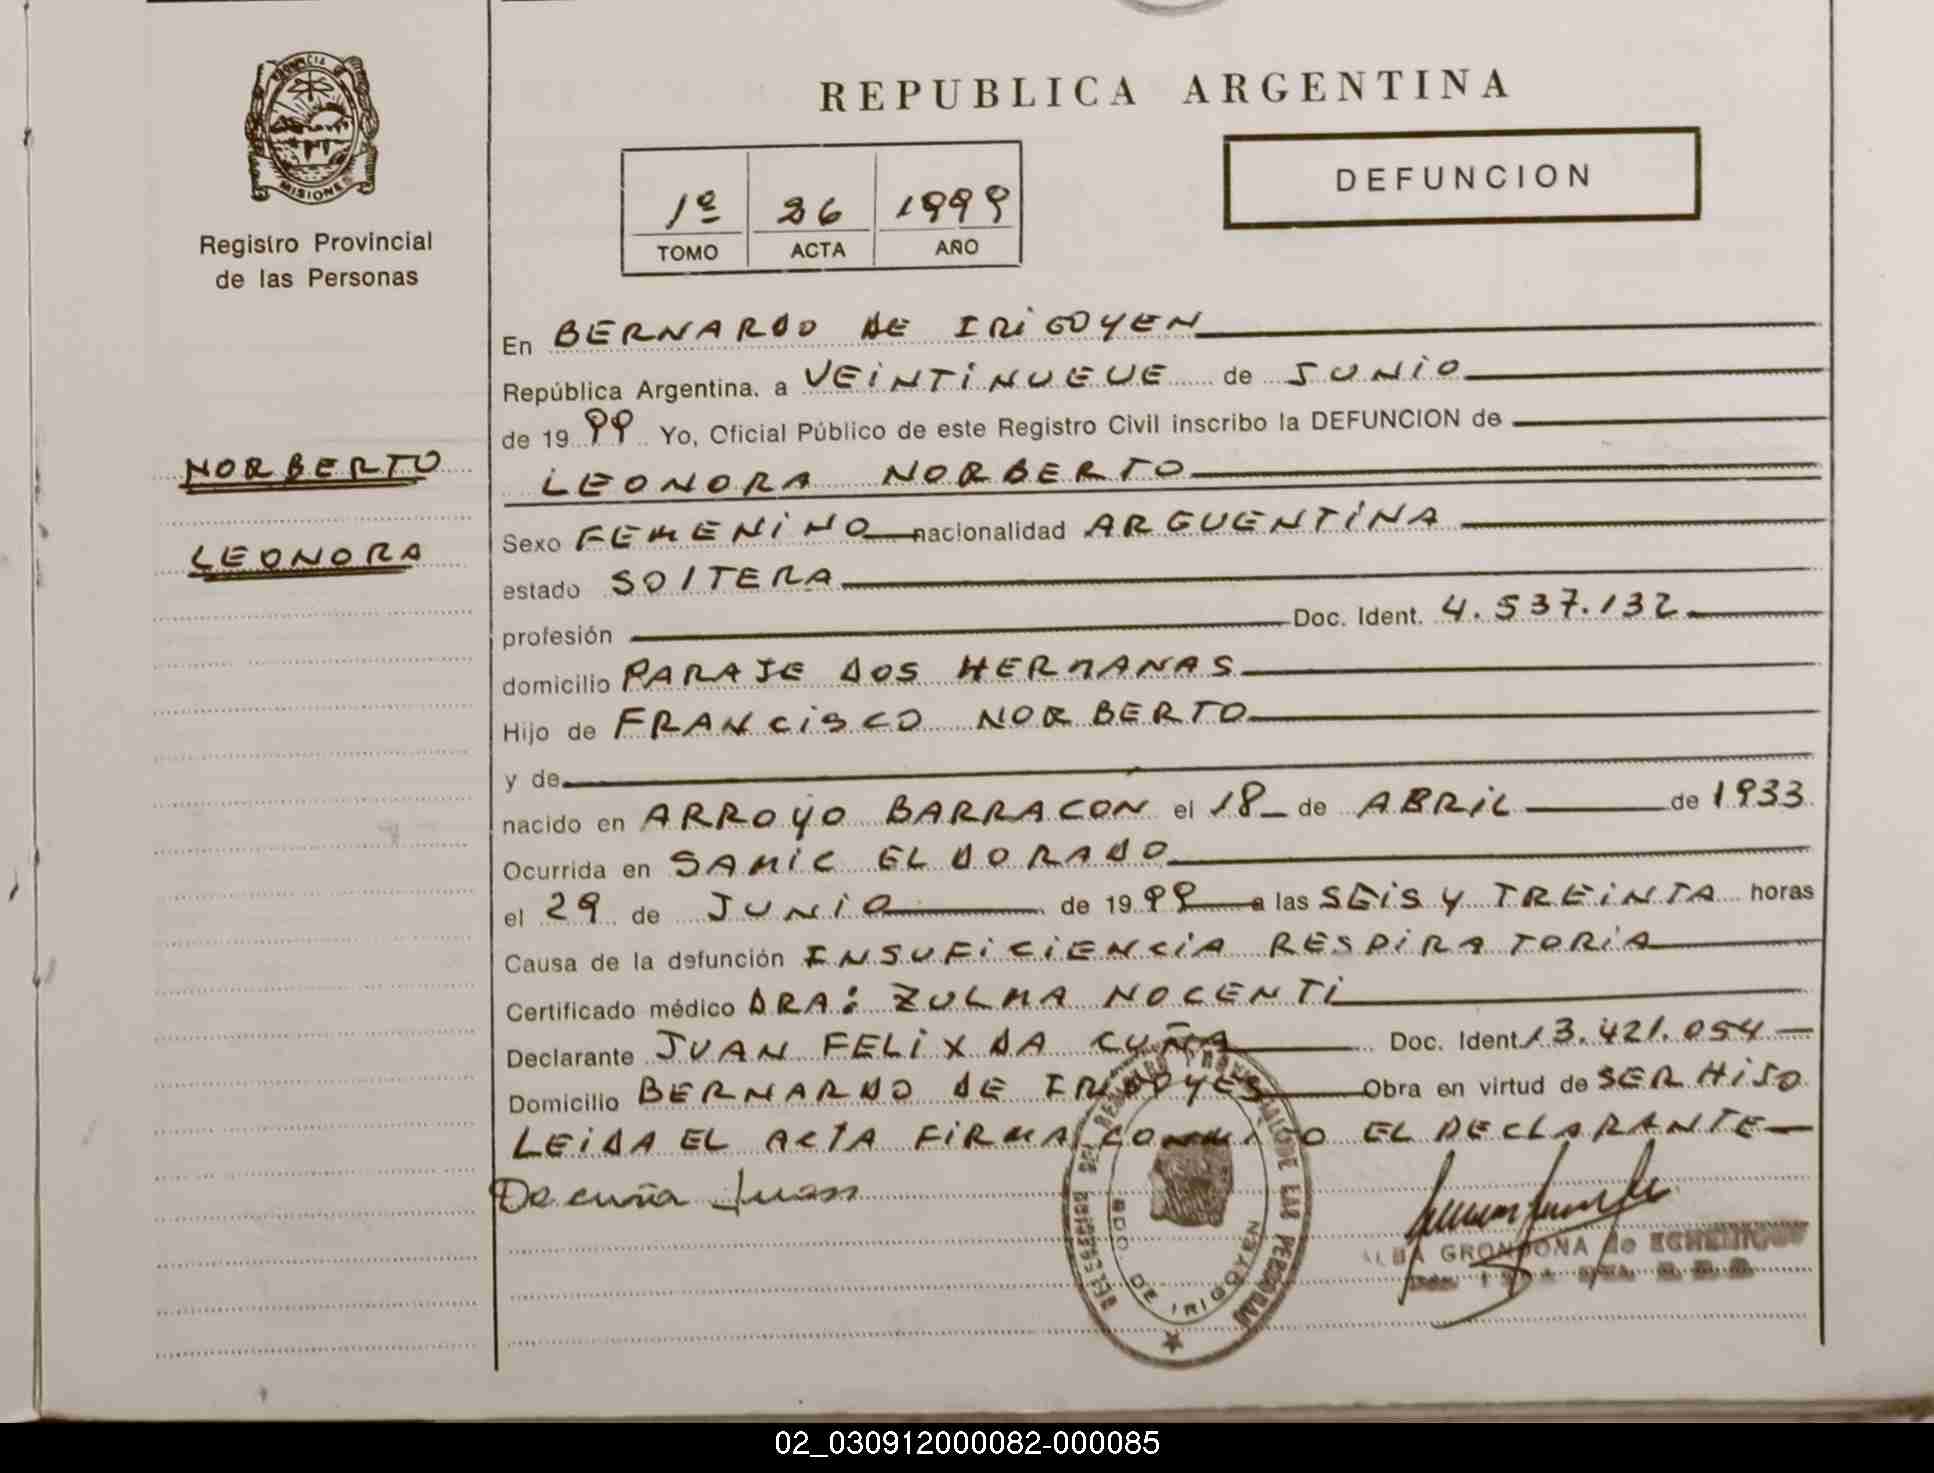 PROVINCIA DE
MISIONES
Registro Provincial
de las Personas
NORBERTO
LEONORA
REPUBLICA ARGENTINA
1º 26 1999
TOMO ACTA AÑO
DEFUNCION
En BERNARDO DE IRIGOYEN
República Argentina, a VEINTINUEVE de JUNIO
de 19 99 Yo, Oficial Público de este Registro Civil inscribo la DEFUNCION de
LEONORA NORBERTO
Sexo FEMENINO nacionalidad ARGUENTINA
estado SOLTERA
profesión Doc. Ident. 4.537.132
domicilio PARAJE DOS HERMANAS
Hijo de FRANCISCO NORBERTO
y de
nacido en ARROYO BARRACON el 18 de ABRIL de 1933
Ocurrida en SAMIC ELDORADO
el 29 de JUNIO de 19 99 a las SEIS Y TREINTA horas
Causa de la defunción INSUFICIENCIA RESPIRATORIA
Certificado médico DRA: ZULMA NOCENTI
Declarante JUAN FELIX DA CUÑA Doc. Ident. 13.421.054
Domicilio BERNARDO DE IRIGOYES Obra en virtud de SER HIJO
LEIDA EL ACTA FIRMA CONMIGO EL DECLARANTE
Da cuña Juan
BDO. DE IRIGOYEN
ALBA GRONDONA de
02_030912000082-000085